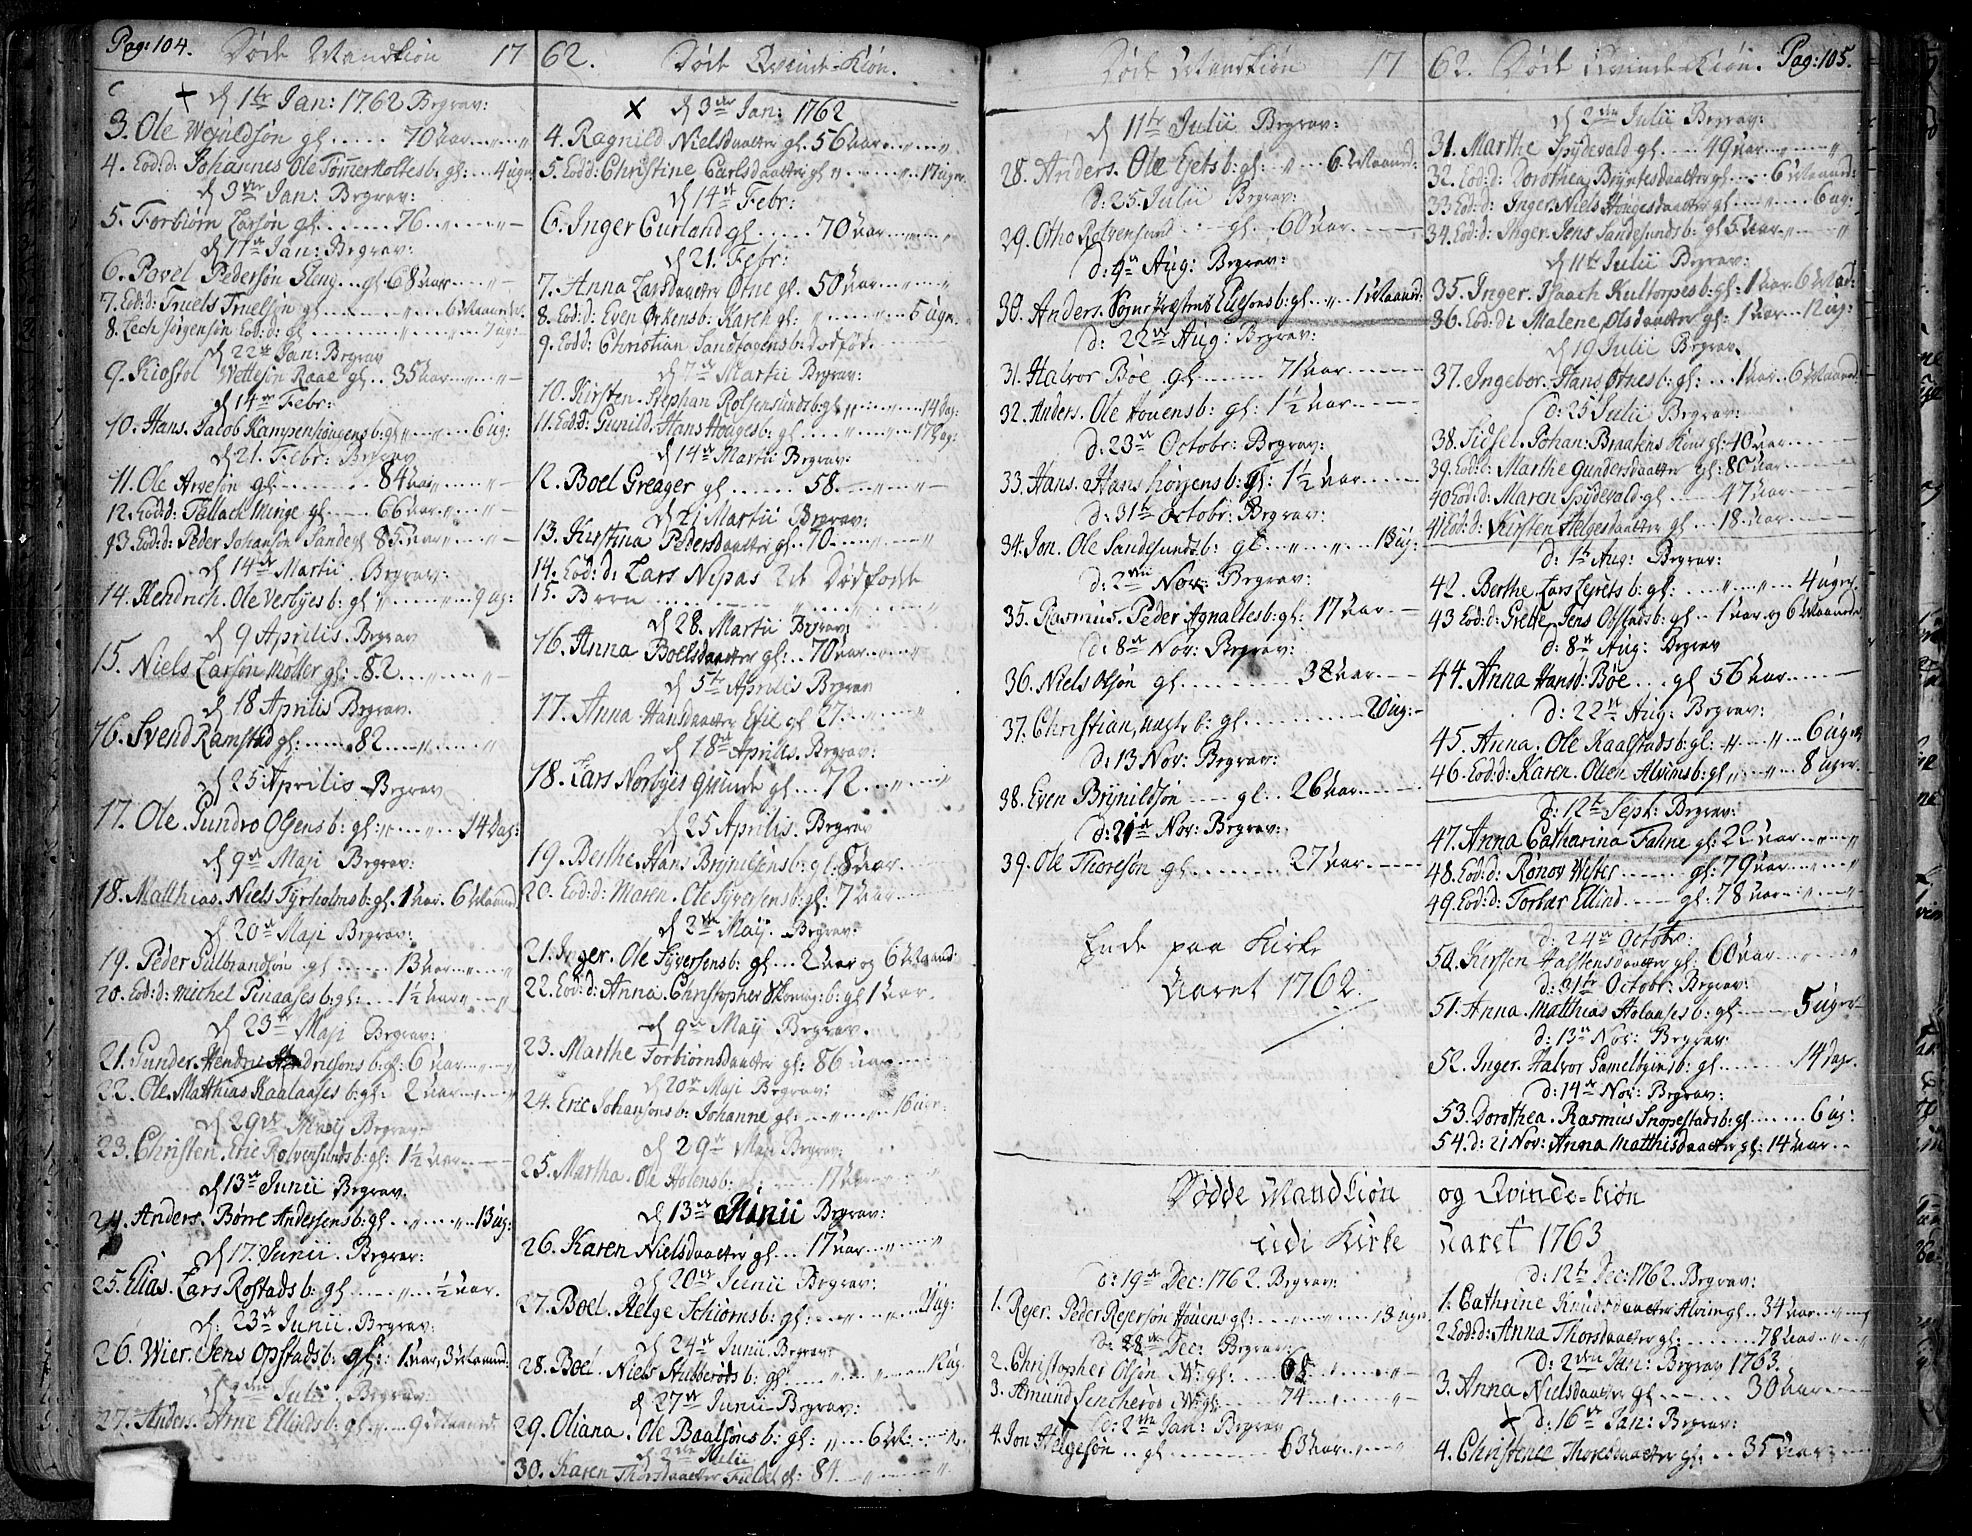 Pag: 104. Døde Mandkiön 17
d 1te Jan: 1762 Begrav:
3. Ole gl ..... 70 aar
4. Eod:d: Johannes Ole Tømmerholtes b: gl: ... 4 uger
d 3de Jan: Begrav:
5. Torbiörn Larsön gl ..... 76
d 17de Jan: Begrav:
6. Povel Pedersön gl 68 aar
7. Eod:d: Truels Truelsön gl 6 Maaneder
8. Lech Jörgensön Eod:d: gl 7 ug:
d 22de Jan: Begrav
9. Kiostol Wettesön Raae gl .. 35 aar
d 14de Febr:
10. Hans. Jacob Kampenhougens b: gl 6 ug:
d 21. Febr: Begrav
11. Ole Arvesön gl 84 aar
12. Eod:d: Tollach Minge gl 66 aar
13. Eod:d: Peder Johansön Sande gl 85 aar
d 14de Martii Begrav:
14. Hendrich. Ole Visbyes b: gl 9 ug:
d 9 Aprilis. Begrav
15. Niels Larsön Möller gl: 82
d 18 Aprilis Begrav.
16. Svend Ramstad gl: 82
d 25 Aprilis Begrav
17. Ole. b: gl: 14 Dag:
d 9de Maji Begrav:
18. Matthias. Niels Tyrholms b: gl. 1 aar. 6 Maaned
d 20de Maji Begrav:
19. Peder Gulbrandsön gl ..... 13 aar
20. Eod:d: Michel b: gl: 1½ aar
d 23de Maji Begrav:
21. Gunder b: gl: 6 aar
22. Ole. Matthias Kaalaases b: gl: 2 aar
d 29de Maij Begrav
23. Christen. Eric Rolvensunds b: gl: 1½ aar
d 13de Junii Begrav.
24. Anders. Börre Andersens b: gl 13 ug:
d 17. Junii. Begrav:
25. Elias. Lars Rostads b: gl ½ aar.
d: 23de Junii. Begrav:
26. Wier. Jens Opstads b: gl: 1 aar, 3 Maaned:
d 2den Julii. Begrav:
27. Anders. Arne Ellinds b: gl 9 Maaned:
62. Døde Qvinde-Kiön.
d 3de Jan: 1762
4. Ragnild Nielsdaatter gl. 56 aar
5. Eod:d: Christine Carlsdaatter gl 17 uger
d 14de Febr:
6. Inger Gurland gl ..... 70 aar
d 21. Febr:
7. Anna Larsdaatter Ørne gl. 50 aar
8. Eod:d: Even Ørkens b: Karen gl: 5 ugr
9. Eod:d: Christian Sandhaugens b: Dødfød.
d 7de Martii Begrav:
10. Kirsten. Stephan Rolfensunds b: gl 14 Dag:
11. Eod:d: Gunild. Hans Houges b: gl 17 Dag:
d 14de Martii Begrav:
12. Boel Greager gl ...... 58.
d 21 Martii Begrav:
13. Kirstina Pedersdaatter gl. 70
14. Eod:d: Lars Nipas 2de Dødfödde
15. Børn
d 28. Martii Begrav:
16. Anna Boelsdaatter gl: .. 70 aar
d 5te Aprilis Begrav
17. Anna Hansdaatter gl 27
d 18de Aprilis. Begrav:
18. Lars Norbyes Qvinde gl ... 72
d 25 Aprilis. Begrav
19. Berthe. Hans Brynilsens b: gl: 8 aar.
20. Eod:d: Maren. Ole Syversens b: gl: 7 aar
d 2den Maij. Begrav:
21. Inger. Ole Syversens b: gl ... 2 aar og 6 Maand:
22. Eod:d: Anna. Christopher b: gl 1 aar.
d 9de Maij Begrav.
23. Marthe Torbiörnsdaatter gl: 86 aar
d 20de Maji Begrav:
24. Eric Johansöns b: Johanne gl: 16 uger
d 29de Maji Begrav:
25. Martha. Ole Holens b: 17 aar
d 13de Junii Begrav:
26. Karen Nielsdaatter gl ... 17 aar
d 20de Junii Begrav:
27. Boel. Helge Schiörns b: gl: ug:
d 24de Junii. Begrav:
28. Boel Niels Stubberöds b: gl 12 ug.
d 27de Junii Begrav:
29. Oliana. Ole Baalsöns b: gl: 6
d 2den Julii
30. Karen Thorsdaatter gl: 84.
Døde Mandkiön 17
d 11te Julii Begrav:
28. Anders. Ole b: gl: 6 Maaned:
d: 25. Julii Begrav:
29. Otho Rolvensund gl. 60 aar
d: 4de Aug: Begrav:
30. Anders. b: gl 1 Maaned:
d: 22de Aug: Begrav:
31. Halvor Böe gl ..... 71 aar
32. Anders. Ole Houens b: gl: 1½ aar
d: 23de Octobr: Begrav:
33. Hans. Hans b: gl: 1½ aar
d: 31te Octobr: Begrav:
34. Jon. Ole Sandesunds b: gl 13 ug:
d: 2den Nov: Begrav:
35. Rasmus. Peder Agnaltes b: gl: 17 aar
d: 8de Nov: Begrav:
36. Niels Olsön gl. 38 aar
37. Christian, b: gl: 20 ug:
d: 13 Nov: Begrav:
38. Even Brynildsön gl .. 26 aar
d: 21de Nov: Begrav:
39. Ole Thoresön gl 27 aar
Ende paa Kirke
Aaret 1762.
62. Døde Qvinde-Kiön. Pag: 105.
d 2den Julii Begrav:
31. Marthe Spydevold gl 49 aar
32. Eod:d: Dorothea Bryntesdaatter gl 6 Maaned:
33. Eod:d: Inger. Niels Hougesdaatter gl 6 ug:
34. Eod:d: Inger. Jens Sandesunds b: gl 5 aar
d 11te Julii Begrav:
35. Inger. Isaach Kultorpes b: gl: 1 aar 6 Maa:
36. Eod:d: Malene Olsdaatter gl: 1 aar 12 ug:
d 19 Julii Begrav.
37. Ingebor. Hans Ørnes b: gl: ... 1 aar. 6 Maaned
d: 25 Julii Begrav:
38. Sidsel. Johan: Braatens Kone gl: 40 aar
39. Eod:d: Marthe Gundersdaatter gl: 80 aar
40 Eod:d: Maren Spydevold gl 47 aar
41 Eod:d: Kirsten Helgesdaatter gl 18. aar
d: 1te Aug: Begrav:
42. Berthe Lars b: gl: 4 uger
43 Eod:d: Grethe Jens Obstads b: gl 1 aar og 6 Maaneder
d: 8de Aug: Begrav
44. Anna Hansd: Böe ... gl 56 aar
d: 22de Aug: Begrav:
45. Anna. Ole Kaalstads b: gl: 6 uger
46. Eod:d: Karen. Olsen Alvims b: gl 8 uger.
d: 12te Sept: Begrav:
47. Anna Catharina Falne gl: 22 aar
48. Eod:d: Rönov Wister gl: 79 aar
49. Eod:d: Torbær Ellind gl: 78 aar
d: 24de Octobr:
50. Kirsten Halstensdaatter gl: 60 aar
d: 31te Octobr: Begrav:
51. Anna. Matthias Holaases b: gl 5 uger
d: 13de Nov: Begrav:
52. Inger. Halvor Gamelbyens b: gl 14 dage.
d: 14de Nov: Begrav:
53. Dorothea. Rasmus Snopestads b: gl 6 ug:
54. d: 21 Nov: Anna Matthisdaatter gl: 14 aar
Dødde Mandkiön og Qvinde-kiön
udi Kirke aaret 1763
d: 19de Dec: 1762. Begrav:
1. Reier. Peder Reiersön Houens gl: 13 uger
d: 28de Dec: Begrav:
2. Christopher Olsön gl: 68
3. Amund 74
d: 2den Jan: Begrav
4. Jon Helgesön gl 63 aar
d: 12te Dec: 1762. Begrav:
1. Cathrine Knudsdaatter Alvim gl. 34 aar
2. Eod:d: Anna Thorsdaatter gl: 78 aar
d: 2den Jan: Begrav 1763.
3. Anna Nielsdaatter gl 30 aar
d: 16de Jan: Begrav:
4. Christence Thoresdaatter gl: 35 aar